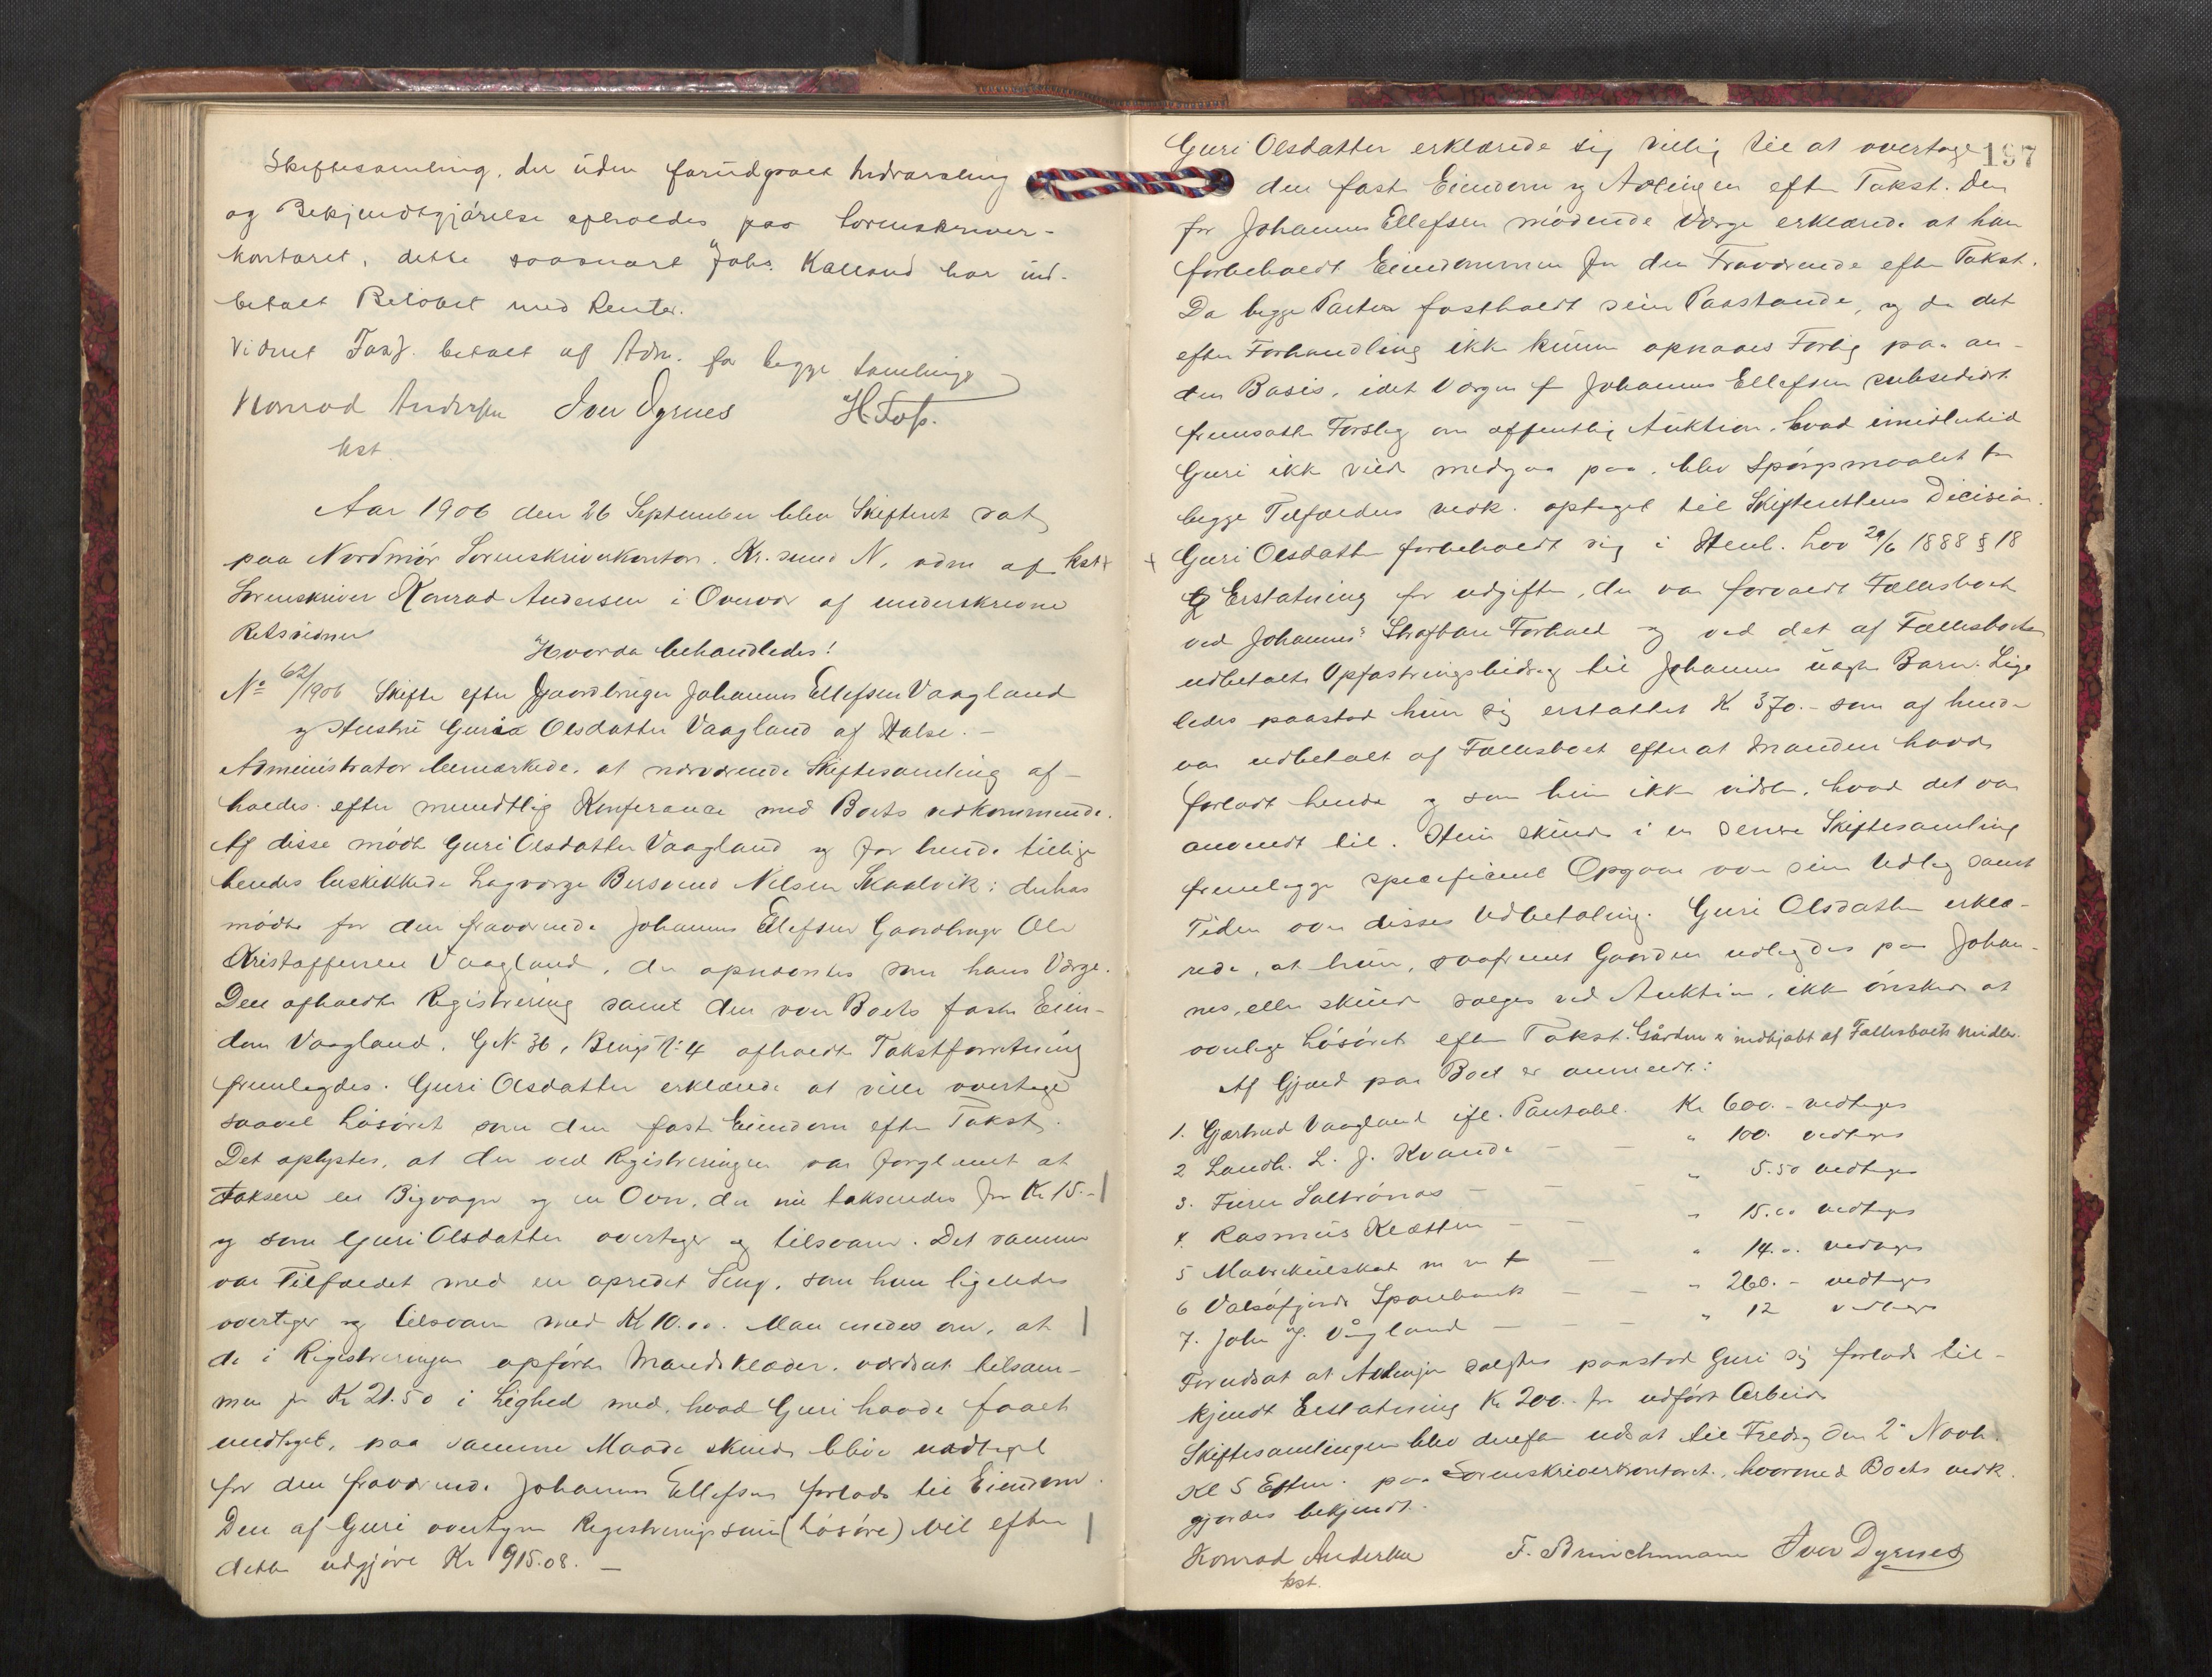 Skiftesamling, der uden forudgaaet Indvarsling
og Bekjendtgjørelse afholdes paa Sorenskriver-
kontoret, dette saasnart Johs. Kalland har ind-
betalt Beløbet med Renter.
Vidnet Fasz. betalt af Adm. for begge Samlinger
Konrad Andersen Iver Dyrnes H. Foss.
kst.
Aar 1906 den 26 September blev Skifteret sat
paa Nordmør Sorenskriverkontor, Kr.sund N, adm af kst
Sorenskriver Konrad Andersen i Overvær af underskrevne
Retsvidner
Hvorda behandledes!
No 62/1906 Skifte efter Gaardbruger Johannes Ellefsen Vaagland
og Hustru Guri Olsdatter Vaagland af Halse. -
Administrator bemærkede, at nærværende Skiftesamling af-
holdes efter mundtlig Konferance med Boets vedkommende.
Af disse mødte Guri Olsdatter Vaagland og for hende tillige
hendes beskikkede Lagværge Bersvend Nilsen Skaalvik; derhos
mødte for den fraværende Johannes Ellefsen Gaardbruger Ole
Kristoffersen Vaagland, der opnævntes som hans Værge.
Den afholdte Registrering samt den over Boets faste Eien-
dom Vaagland, G.N. 36, Brugs N: 4 afholdte Takstforretning
fremlagdes. Guri Olsdatter erklærede at ville overtage
saavel Løsøret som den faste Eiendom efter Takst.
Det oplystes, at der ved Registreringen var forglemt at
taksere en Bigvogn og en Ovn, der nu takseredes for Kr 15.-
og som Guri Olsdatter overtager og tilsvarer. Det samme
var Tilfældet med en opredet Seng, som hun ligeledes
overtager og tilsvarer med Kr 10.00. Man enedes om, at
de i Registreringen opførte Mandsklæder, værdsat tilsam-
men for Kr 21.50 i Lighed med, hvad Guri havde faaet
undtaget, paa samme Maade skulde blive undtaget
for den fraværende Johannes Ellefsen forlods til Eiendom.
Den af Guri overtagne Registreringssum (Løsøre) vil efter
dette udgjøre Kr 915.08. -
197
Guri Olsdatter erklærede sig villig til at overtage
den faste Eiendom og Avlingen efter Takst. Den
for Johannes Ellefsen mødende Værge erklærede at han
forbeholdt Eiendommen for den Fraværende efter Takst.
Da begge Parter fastholdt sin Paastande, og da det
efter Forhandling ikke kunne opnaaes Forlig paa an-
den Basis, idet Værgen f Johannes Ellefsen subsidiært
fremsatte Forslag om offentlig Auktion, hvad imidlertid
Guri ikke vilde medgaa paa, blev Spørgsmaalet for
begge Tilfældes vedk. optaget til Skifterettens Decision.
+ Guri Olsdatter forbeholdt sig i Henh. Lov 29/6 1888 § 18
Erstatning for udgifter, der var forvoldt Fællesboet
ved Johannes' Strafbare Forhold og ved det af Fællesboet
udbetalte Opfostringsbidrag til Johannes uægte Barn. Lige
ledes paastod hun sig erstattet Kr 370.- som af hende
var udbetalt af Fællesboet efterat Manden havde
forladt hende og som hun ikke vidste, hvad det var
anvendt til. Hun skulde i en senere Skiftesamling
fremlægge specificeret Opgave over sin Udlæg samt
Tiden over disses Udbetaling. Guri Olsdatter erklæ-
rede, at hun, saafremt Gaarden udlagdes paa Johan-
nes, eller skulde sælges ved Auktion, ikke ønskede at
overtage Løsøret efter Takst. Gården er indkjøbt af Fællesboets Midler.
Af Gjæld paa Boet er anmeldt:
1. Gjertrud Vaagland ifl. Pantobl. Kr 600.- vedtages
2 Landh. L. J. Kvande - - " 100. vedtages
3. Saltrønas - - - " 5.50 vedtages
4. Rasmus Kletten - - " 15.00 vedtages
5 Matrikulskat m m - " 14.00 vedtages
6 Valsøfjords Sparebank - - " 260.- vedtages
7. John J. Vågland - - - " 12 vedtages
Forudsat at Avlingen sælges paastod Guri sig forlods til-
kjendt Erstatning Kr 200.- for udført Arbeide
Skiftesamlingen blev derefter udsat til Fredag den 2' Novb.
Kl 5 Eftm. paa Sorenskriverkontoret, hvormed Boets vedk.
gjordes bekjendt.
Konrad Andersen F. Brinchmann Iver Dyrnes
kst.